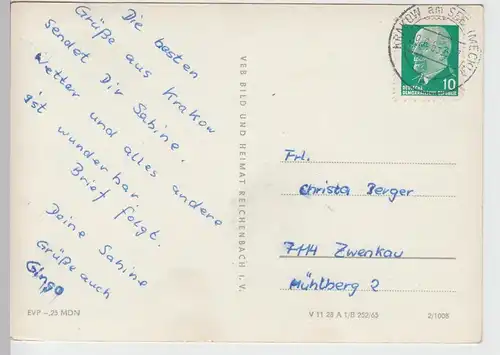 Die besten
Grüße aus Krakow
sendet Dir Sabine.
Wetter und alles andere
ist wunderbar.
Brief folgt.
Deine Sabine
Grüße auch
EVP –,25 MDN
VEB BILD UND HEIMAT REICHENBACH I. V.
KRAKOW am SEE (MECKL)
10
DEUTSCHE
DEMOKRATISCHE REPUBLIK
Frl.
Christa Berger
7114 Zwenkau
Mühlberg 2
V 11 28 A 1/B 252/65
2/1008